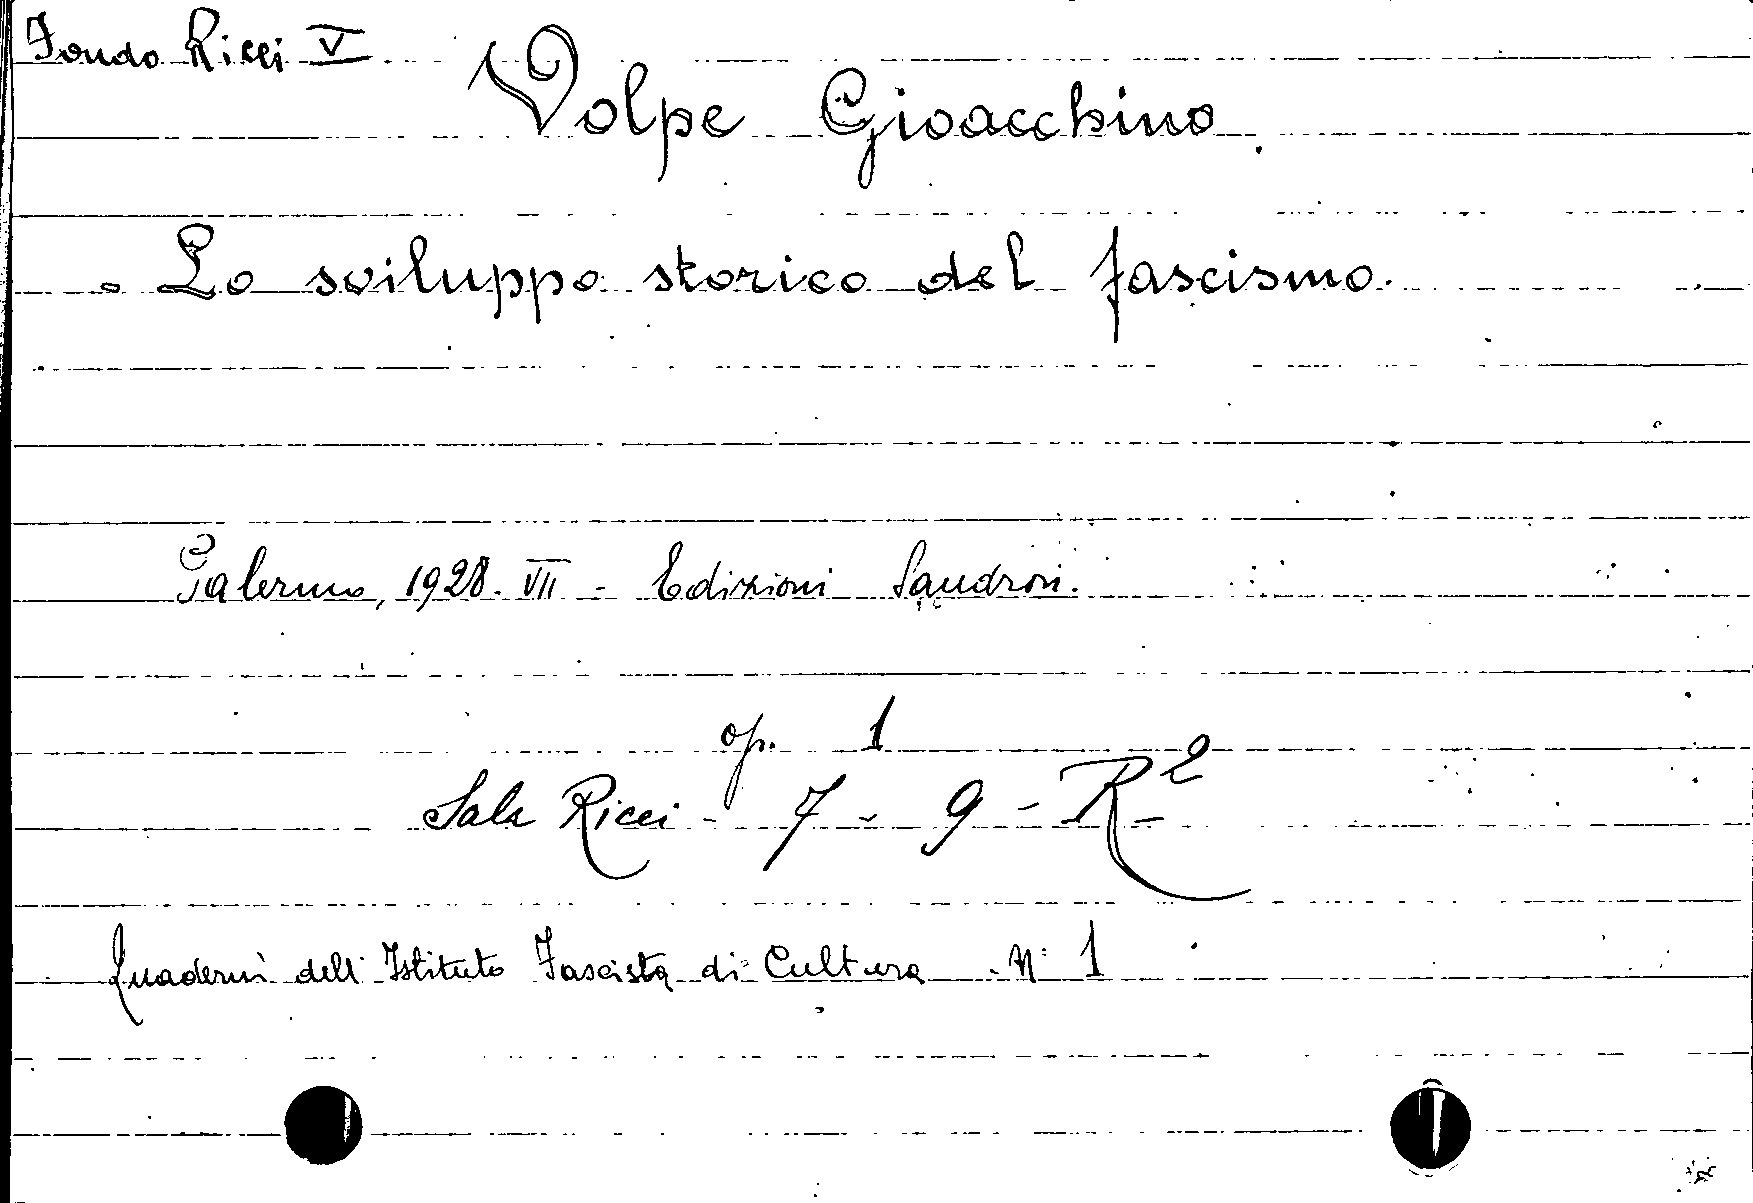 Fondo Ricci V
Volpe Gioacchino
- Lo sviluppo storico del fascismo.
Palermo, 1928. VII - Edizioni Sandron.
op. 1
Sala Ricci - 7 - 9 - R2
Quaderni dell'Istituto Fascista di Cultura - N. 1